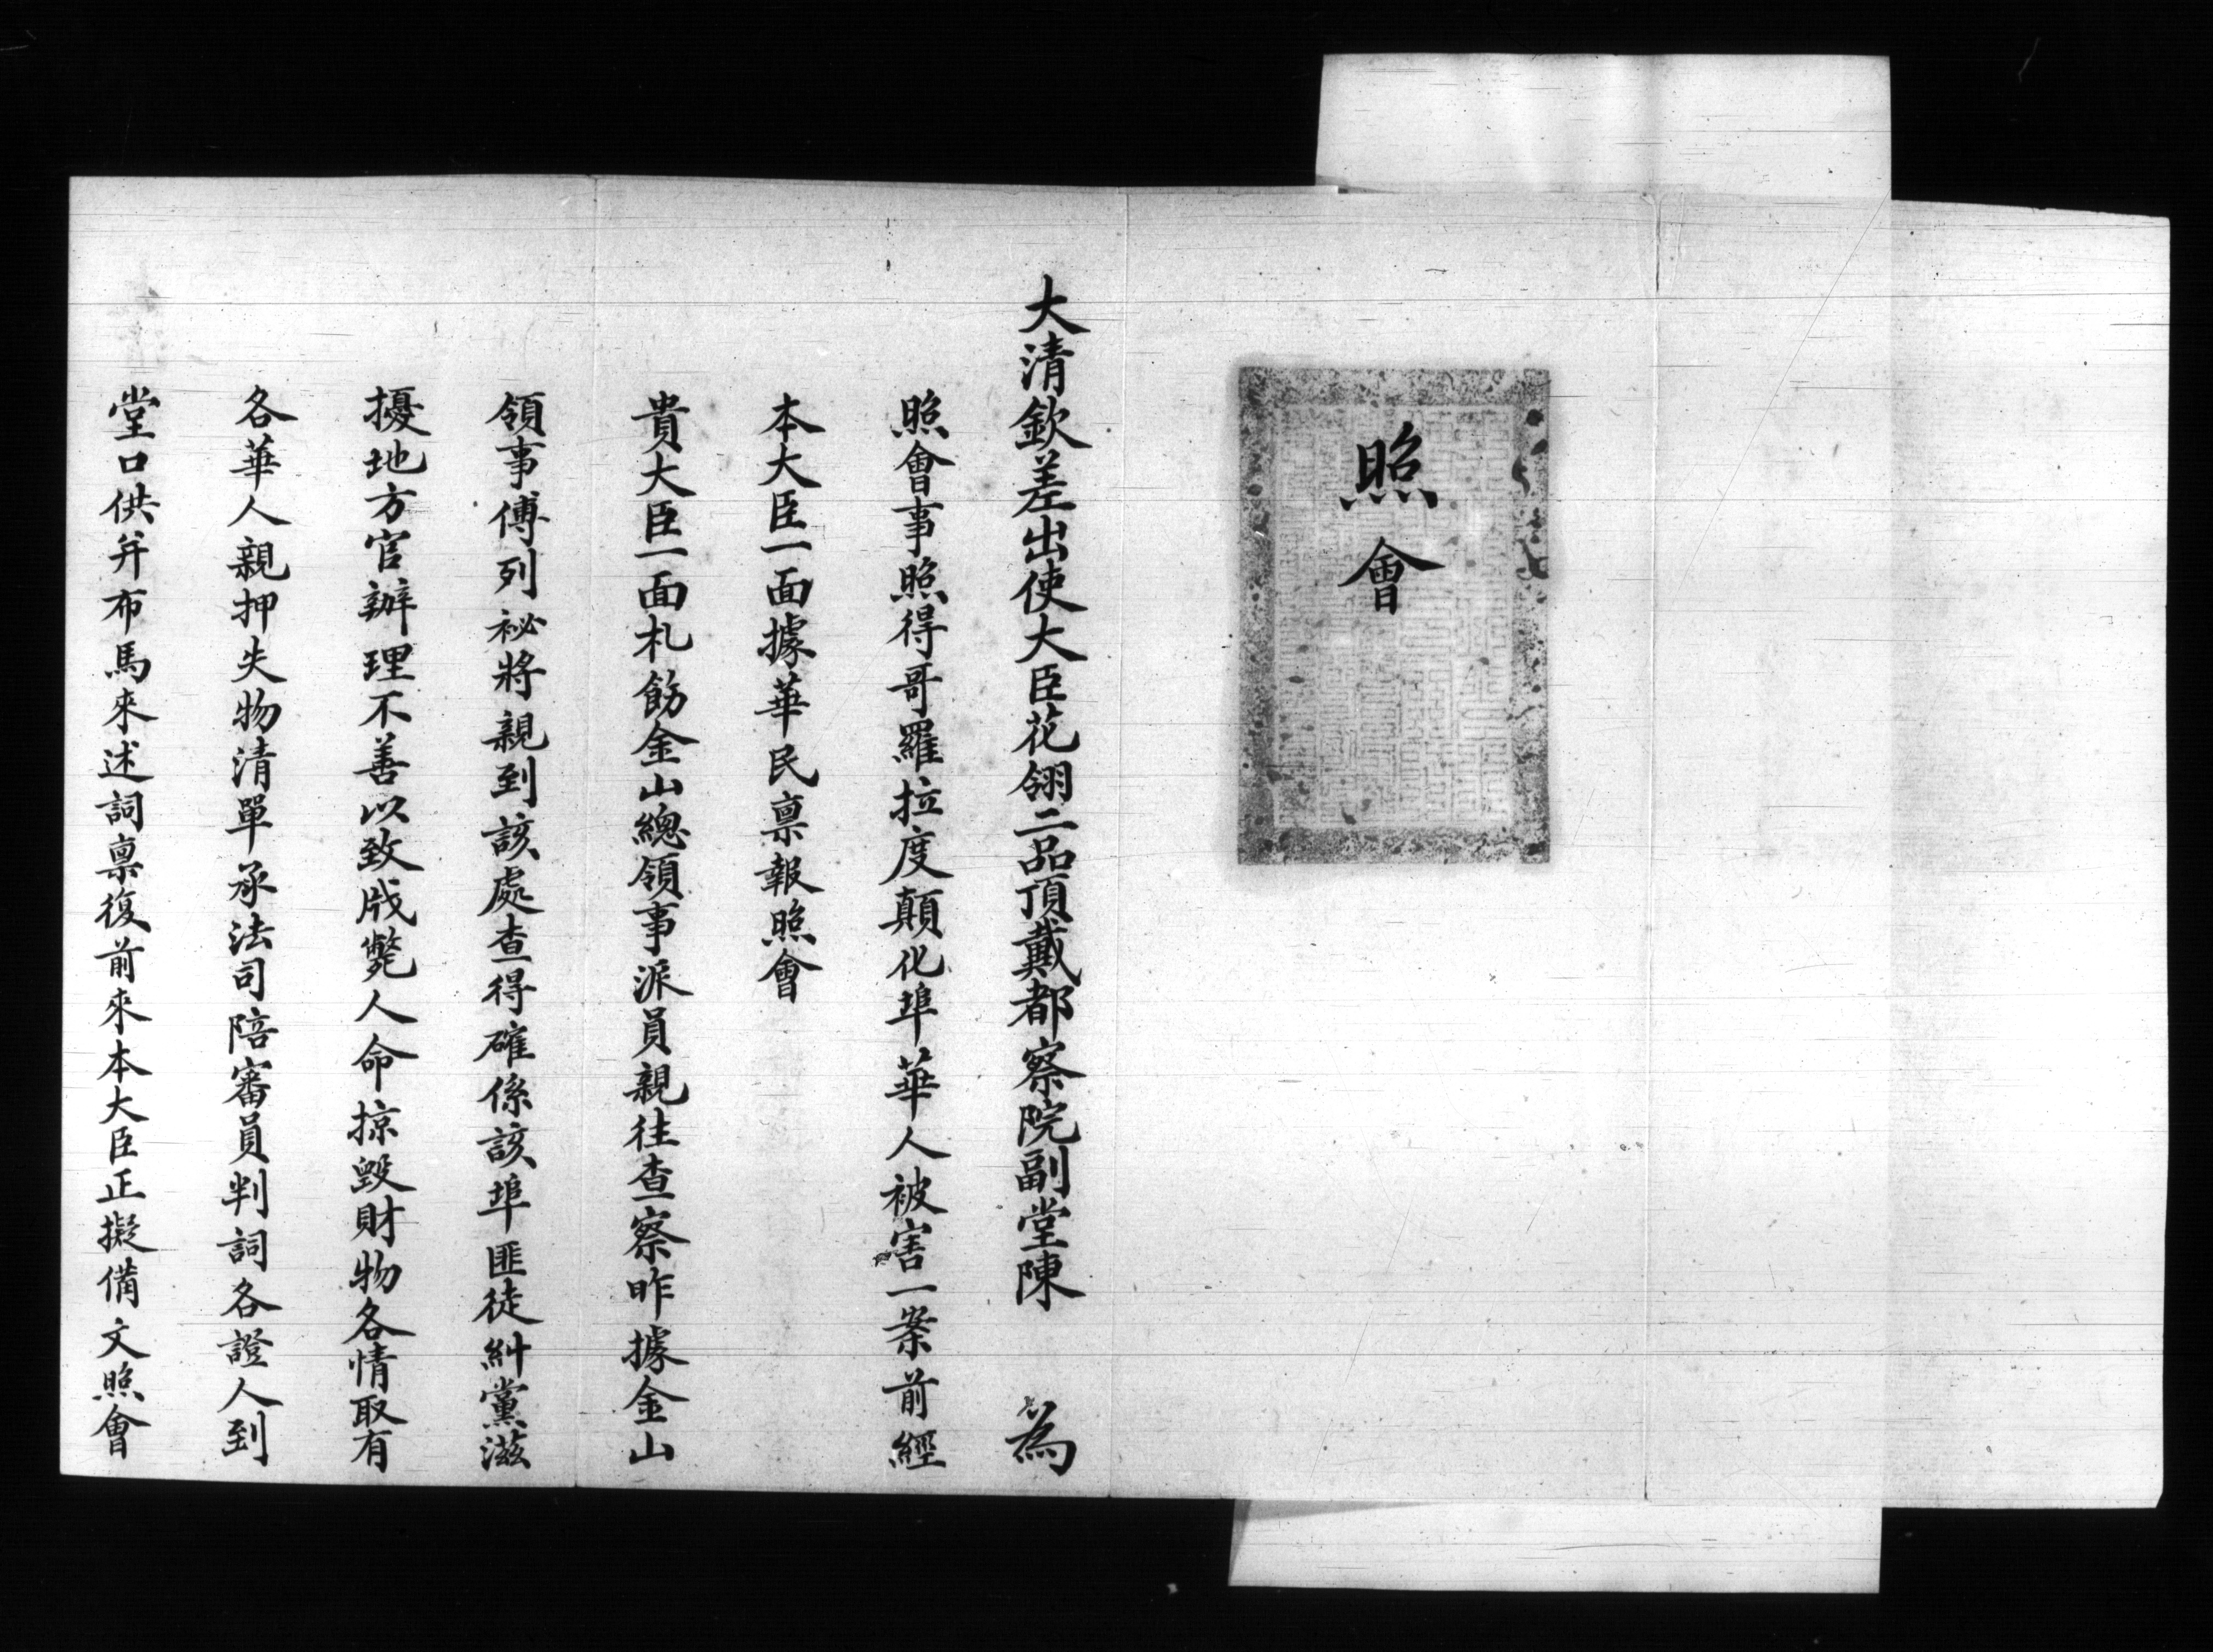 照會
大清欽差出使大臣花翎二品頂戴都察院副堂陳　為
照會事照得哥羅拉度顛化埠華人被害一案前經
本大臣一面據華民禀報照會
貴大臣一面札飭金山總領事派員親往查察昨據金山
領事傅列祕將親到該處查得確係該埠匪徒糾黨滋
擾地方官辦理不善以致戕斃人命掠毀財物各情取有
各華人親押失物清單承法司陪審員判詞各證人到
堂口供并布馬來述詞禀復前來本大臣正擬備文照會